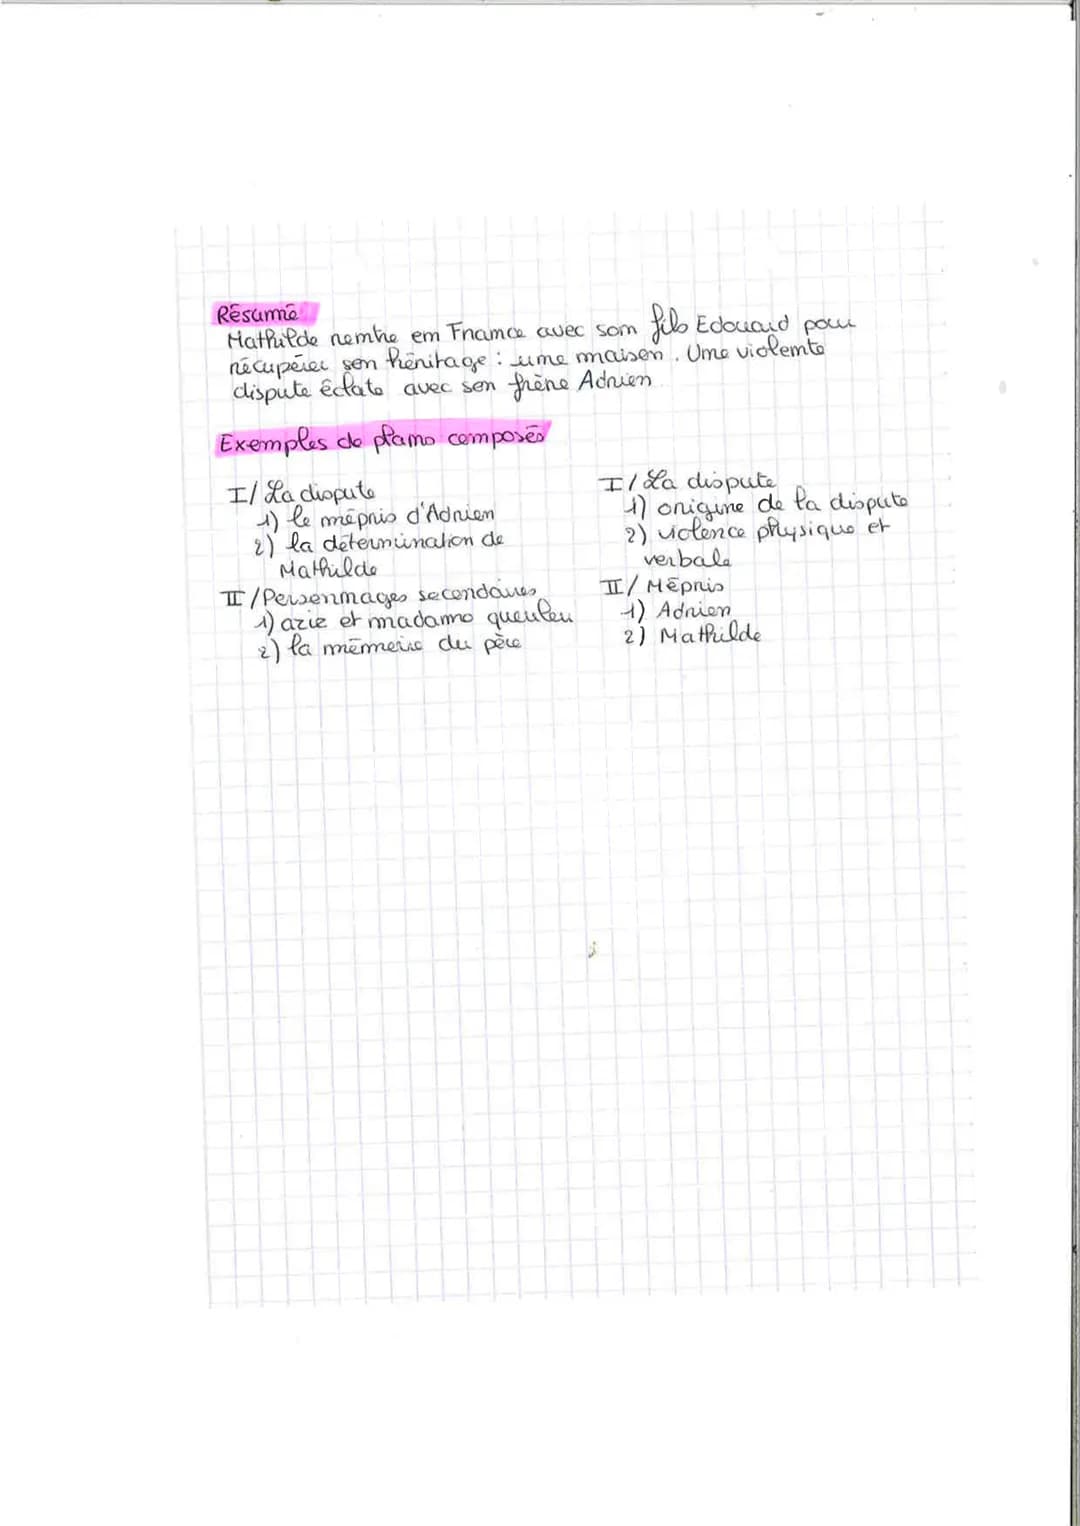 Résumé
Mathilde rentre en France avec son fils Edouard pour
récupérer son héritage : une maison. Une violente
dispute éclate avec son frère Adrien
Exemples de plans composés
I/ La dispute
1) le mépris d'Adrien
2) la détermination de
Mathilde
II/Personnages secondaires
1) aziz et madame queuleu
2) la mémoire du père
I/ La dispute
1) origine de la dispute
2) violence physique et
verbale
II/ Mépris
1) Adrien
2) Mathilde